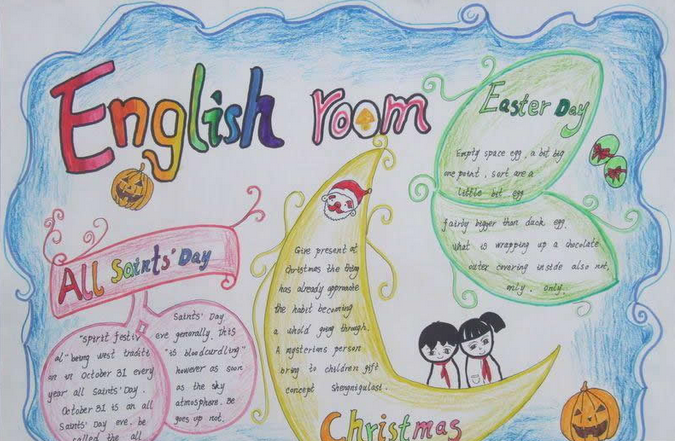 English room
Easter Day
Empty space egg, a bit big
one point, sort are a
little bit egg
fairly bigger than duck egg.
What is wrapping up a chocolate
outer covering inside also not,
only. only.
All Saints' Day
"Spirit festiv
al" being west traditi
on in October 31 every
year all Saints' Day.
October 31 is an all
Saints' Day eve. be
called the all
Saints' Day
eve generally. This
"is bloodcurdling"
however as soon
as the sky
atmosphere. Be
goes up not.
Give present at
Christmas the thing
has already approximate
the habit becoming
a whold going through.
A mysterims person
bring to children gift
concept Shengnigulasi.
Christmas